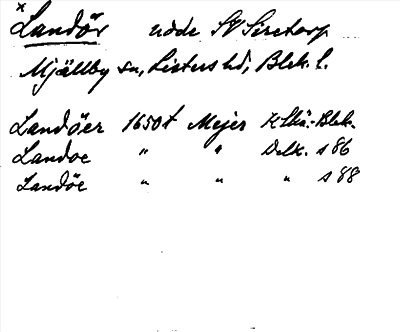 x Landör udde SV Siretorp
Mjällby sn, Listers hd, Blek. l.
Landöer 1650t Mejer KSkå.-Blek.
Landoe " " Delk. s 86
Landöe " " " s 88